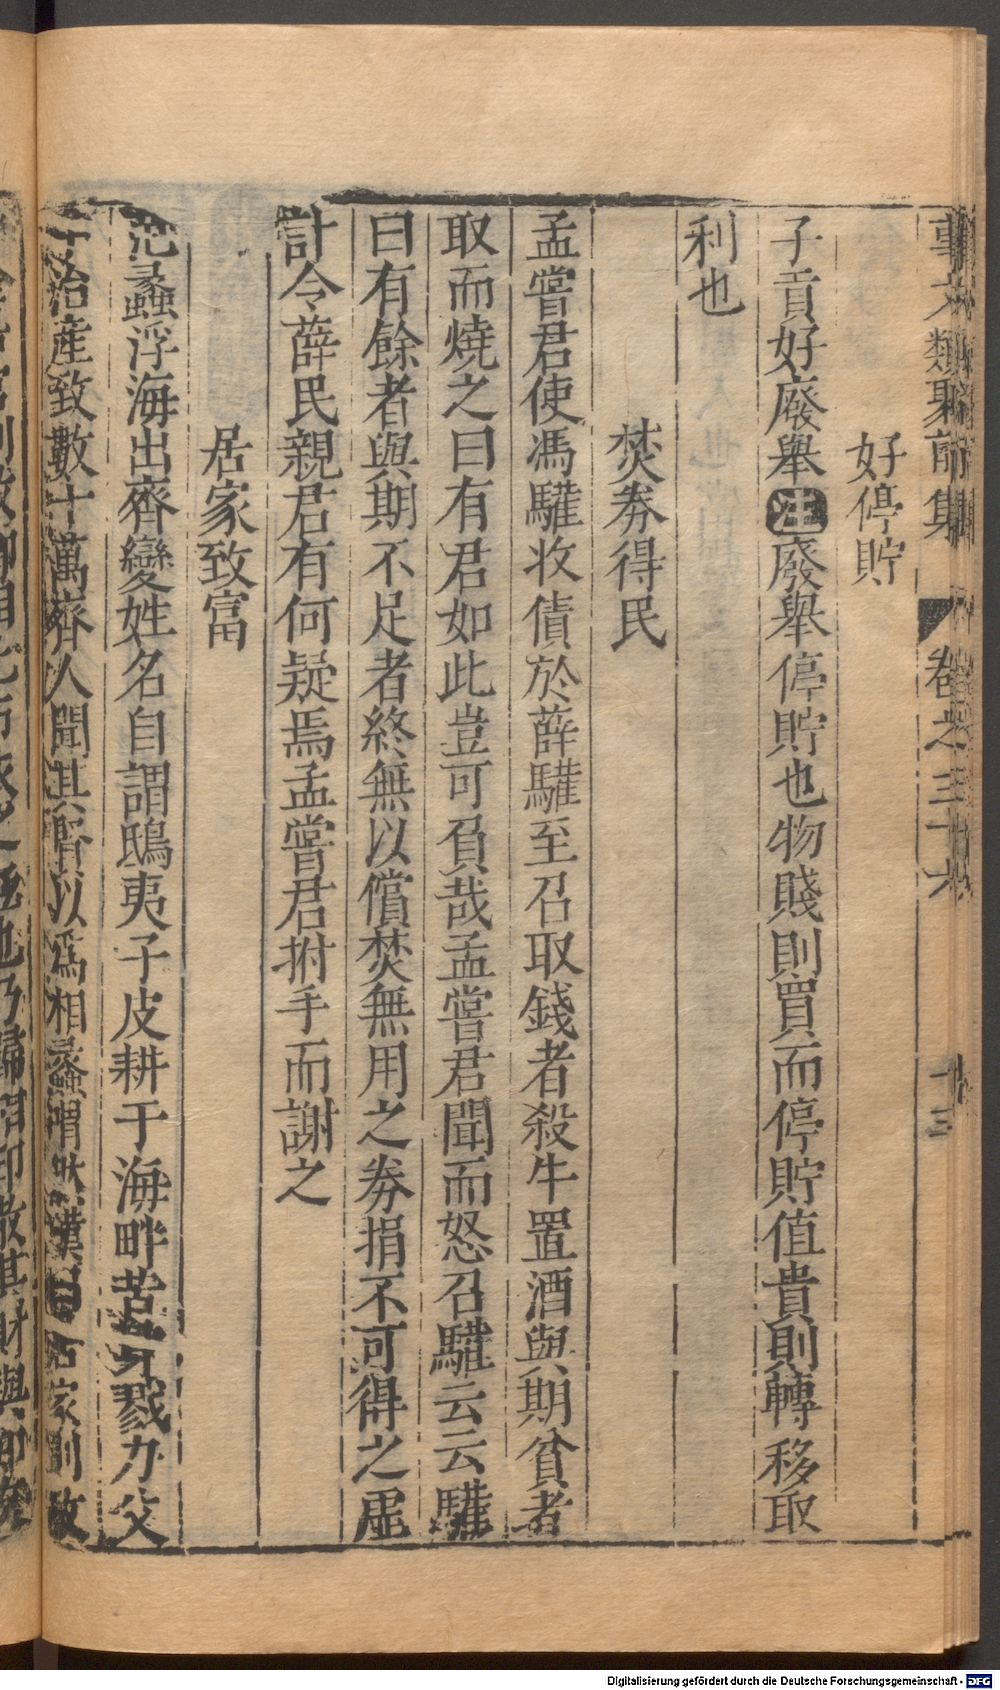 事文類聚前集 卷之三十六 十三
好停貯
子貢好廢舉注廢舉停貯也物賤則買而停貯值貴則轉移取
利也
焚券得民
孟嘗君使馮驩收債於薛驩至召取錢者殺牛置酒與期貧者
取而燒之曰有君如此豈可負哉孟嘗君聞而怒召驩云云驩
曰有餘者與期不足者終無以償焚無用之券捐不可得之虛
計令薛民親君有何疑焉孟嘗君拊手而謝之
居家致富
范蠡浮海出齊變姓名自謂鴟夷子皮耕于海畔苦身戮力父
子治產致數十萬齊人聞其賢以為相蠡喟然嘆曰居家則致
乃歸相印散其財與
Digitalisierung gefördert durch die Deutsche Forschungsgemeinschaft - DFG